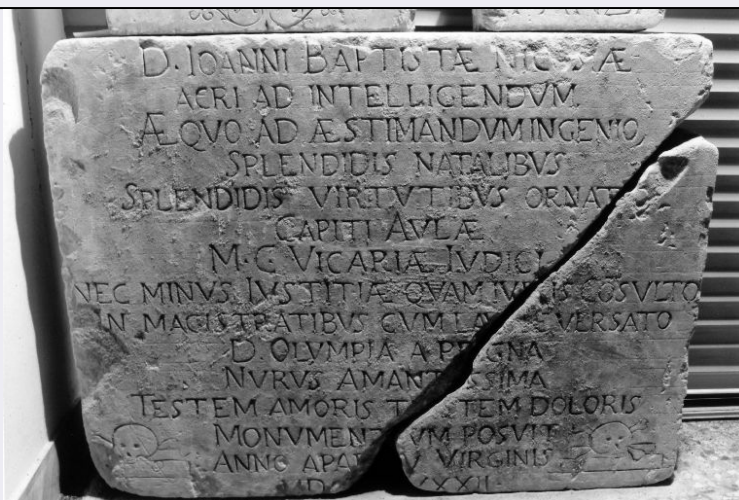 D. IOANNI BAPTISTÆ
ACRI AD INTELLIGENDVM
ÆQVO AD ÆSTIMANDVM INGENIO,
SPLENDIDIS NATALIBVS
SPLENDIDIS VIRTVTIBVS ORNAT
CAPITI AVLÆ
M. C. VICARIÆ IVDICI
NEC MINVS IVSTITIÆ QVAM COSVLTO
IN MAGISTRATIBVS CVM VERSATO
D. OLVMPIA A
NVRVS AMANTISSIMA
TESTEM AMORIS TESTEM DOLORIS
MONVMENTVM POSVIT
ANNO A VIRGINIS
XXII